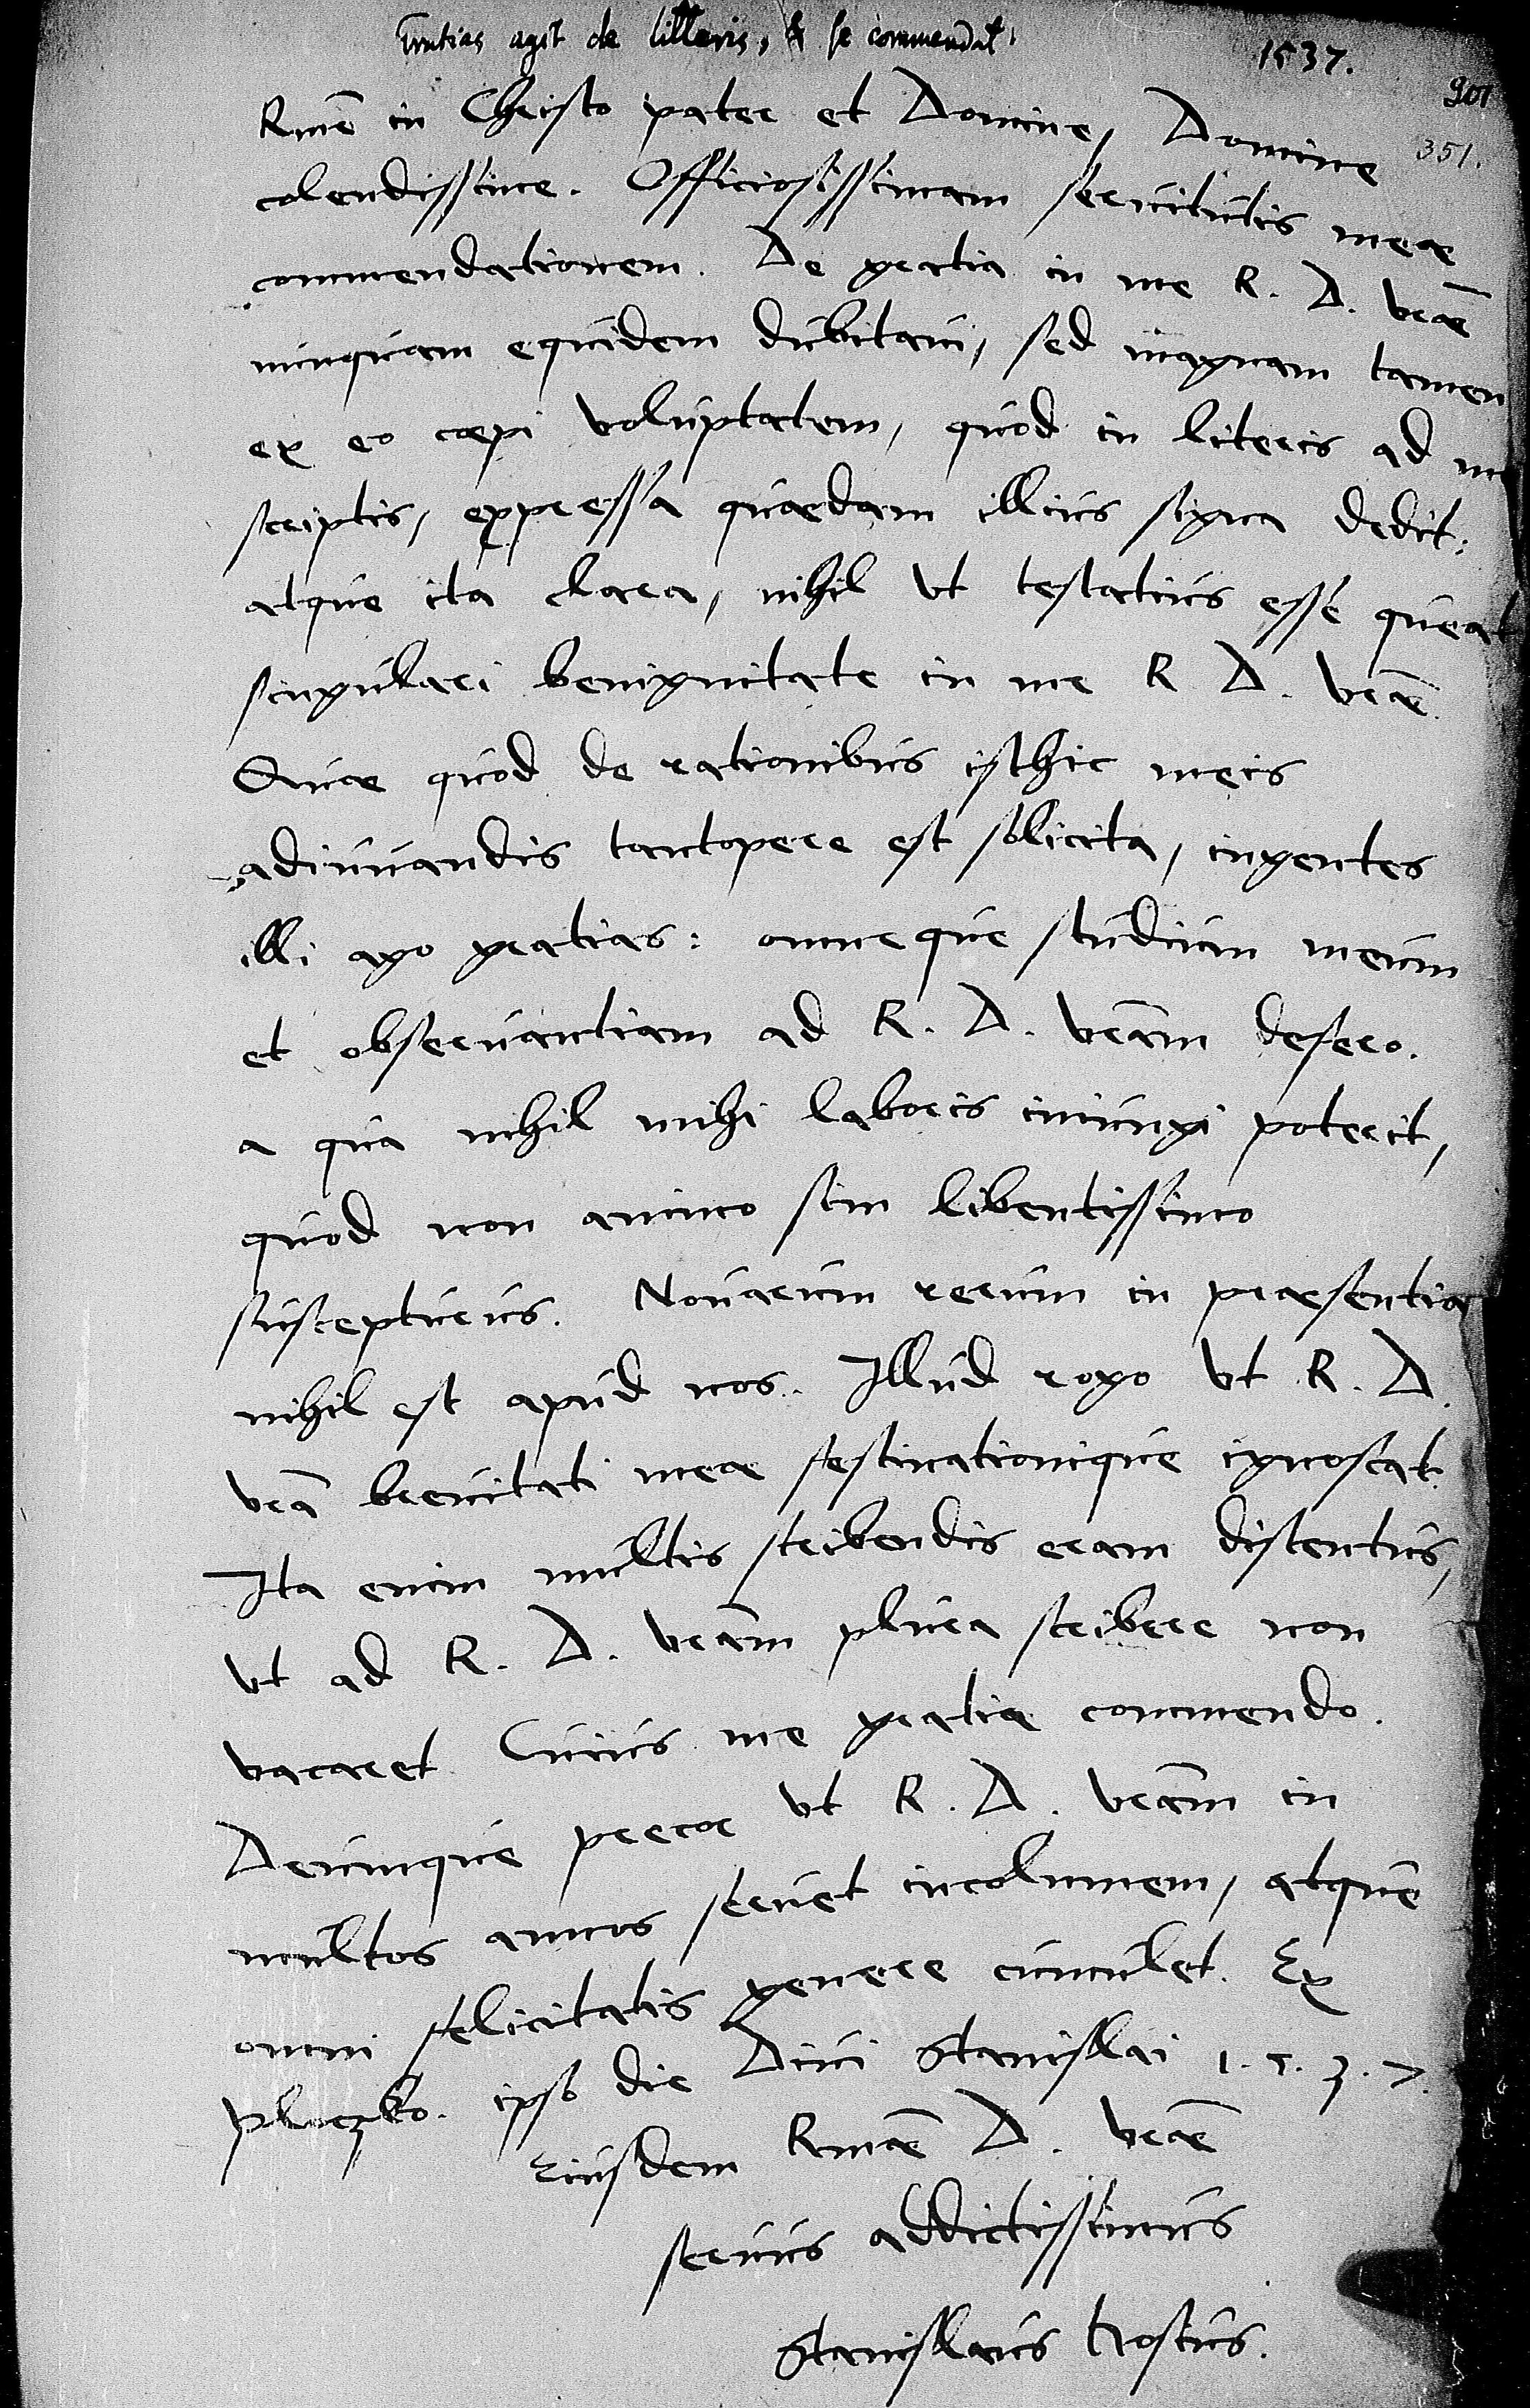 Gratias agit de litteris, & se commendat.
1537.
901
351.
Rme in Christo pater et Domine, Domine
colendissime. Officiosissimam servitutis meae
commendationem. De gratia in me R. D. vrae
nunquam equidem dubitavi, sed magnam tamen
ex eo coepi voluptatem, quod in literis ad me
scriptis, expressa quaedam illius signa dedit:
atque ita clara, nihil ut testatius esse queat
singulari benignitate in me R D. vrae.
Quae quod de rationibus isthic meis
adiuvandis tantopere est solicita, ingentes
illi ago gratias: omneque studium meum
et observantiam ad R. D. vram defero.
a qua nihil mihi laboris iniungi poterit,
quod non animo sim libentissimo
suscepturus. Novarum rerum in praesentia
nihil est apud nos. Illud rogo ut R. D.
vra brevitati meae festinationique ignoscat.
Ita enim multis scribendis eram distentus,
ut ad R. D. vram plura scribere non
vacaret. Cuius me gratiae commendo.
Deumque precor ut R. D. vram in
multos annos servet incolumem, atque
omni felicitatis genere cumulet. Ex
Ploczko. ipso die Divi Stanislai 1.5.3.7.
Eiusdem Rmae D. vrae
servus addictissimus
Stanislaus Hosius.